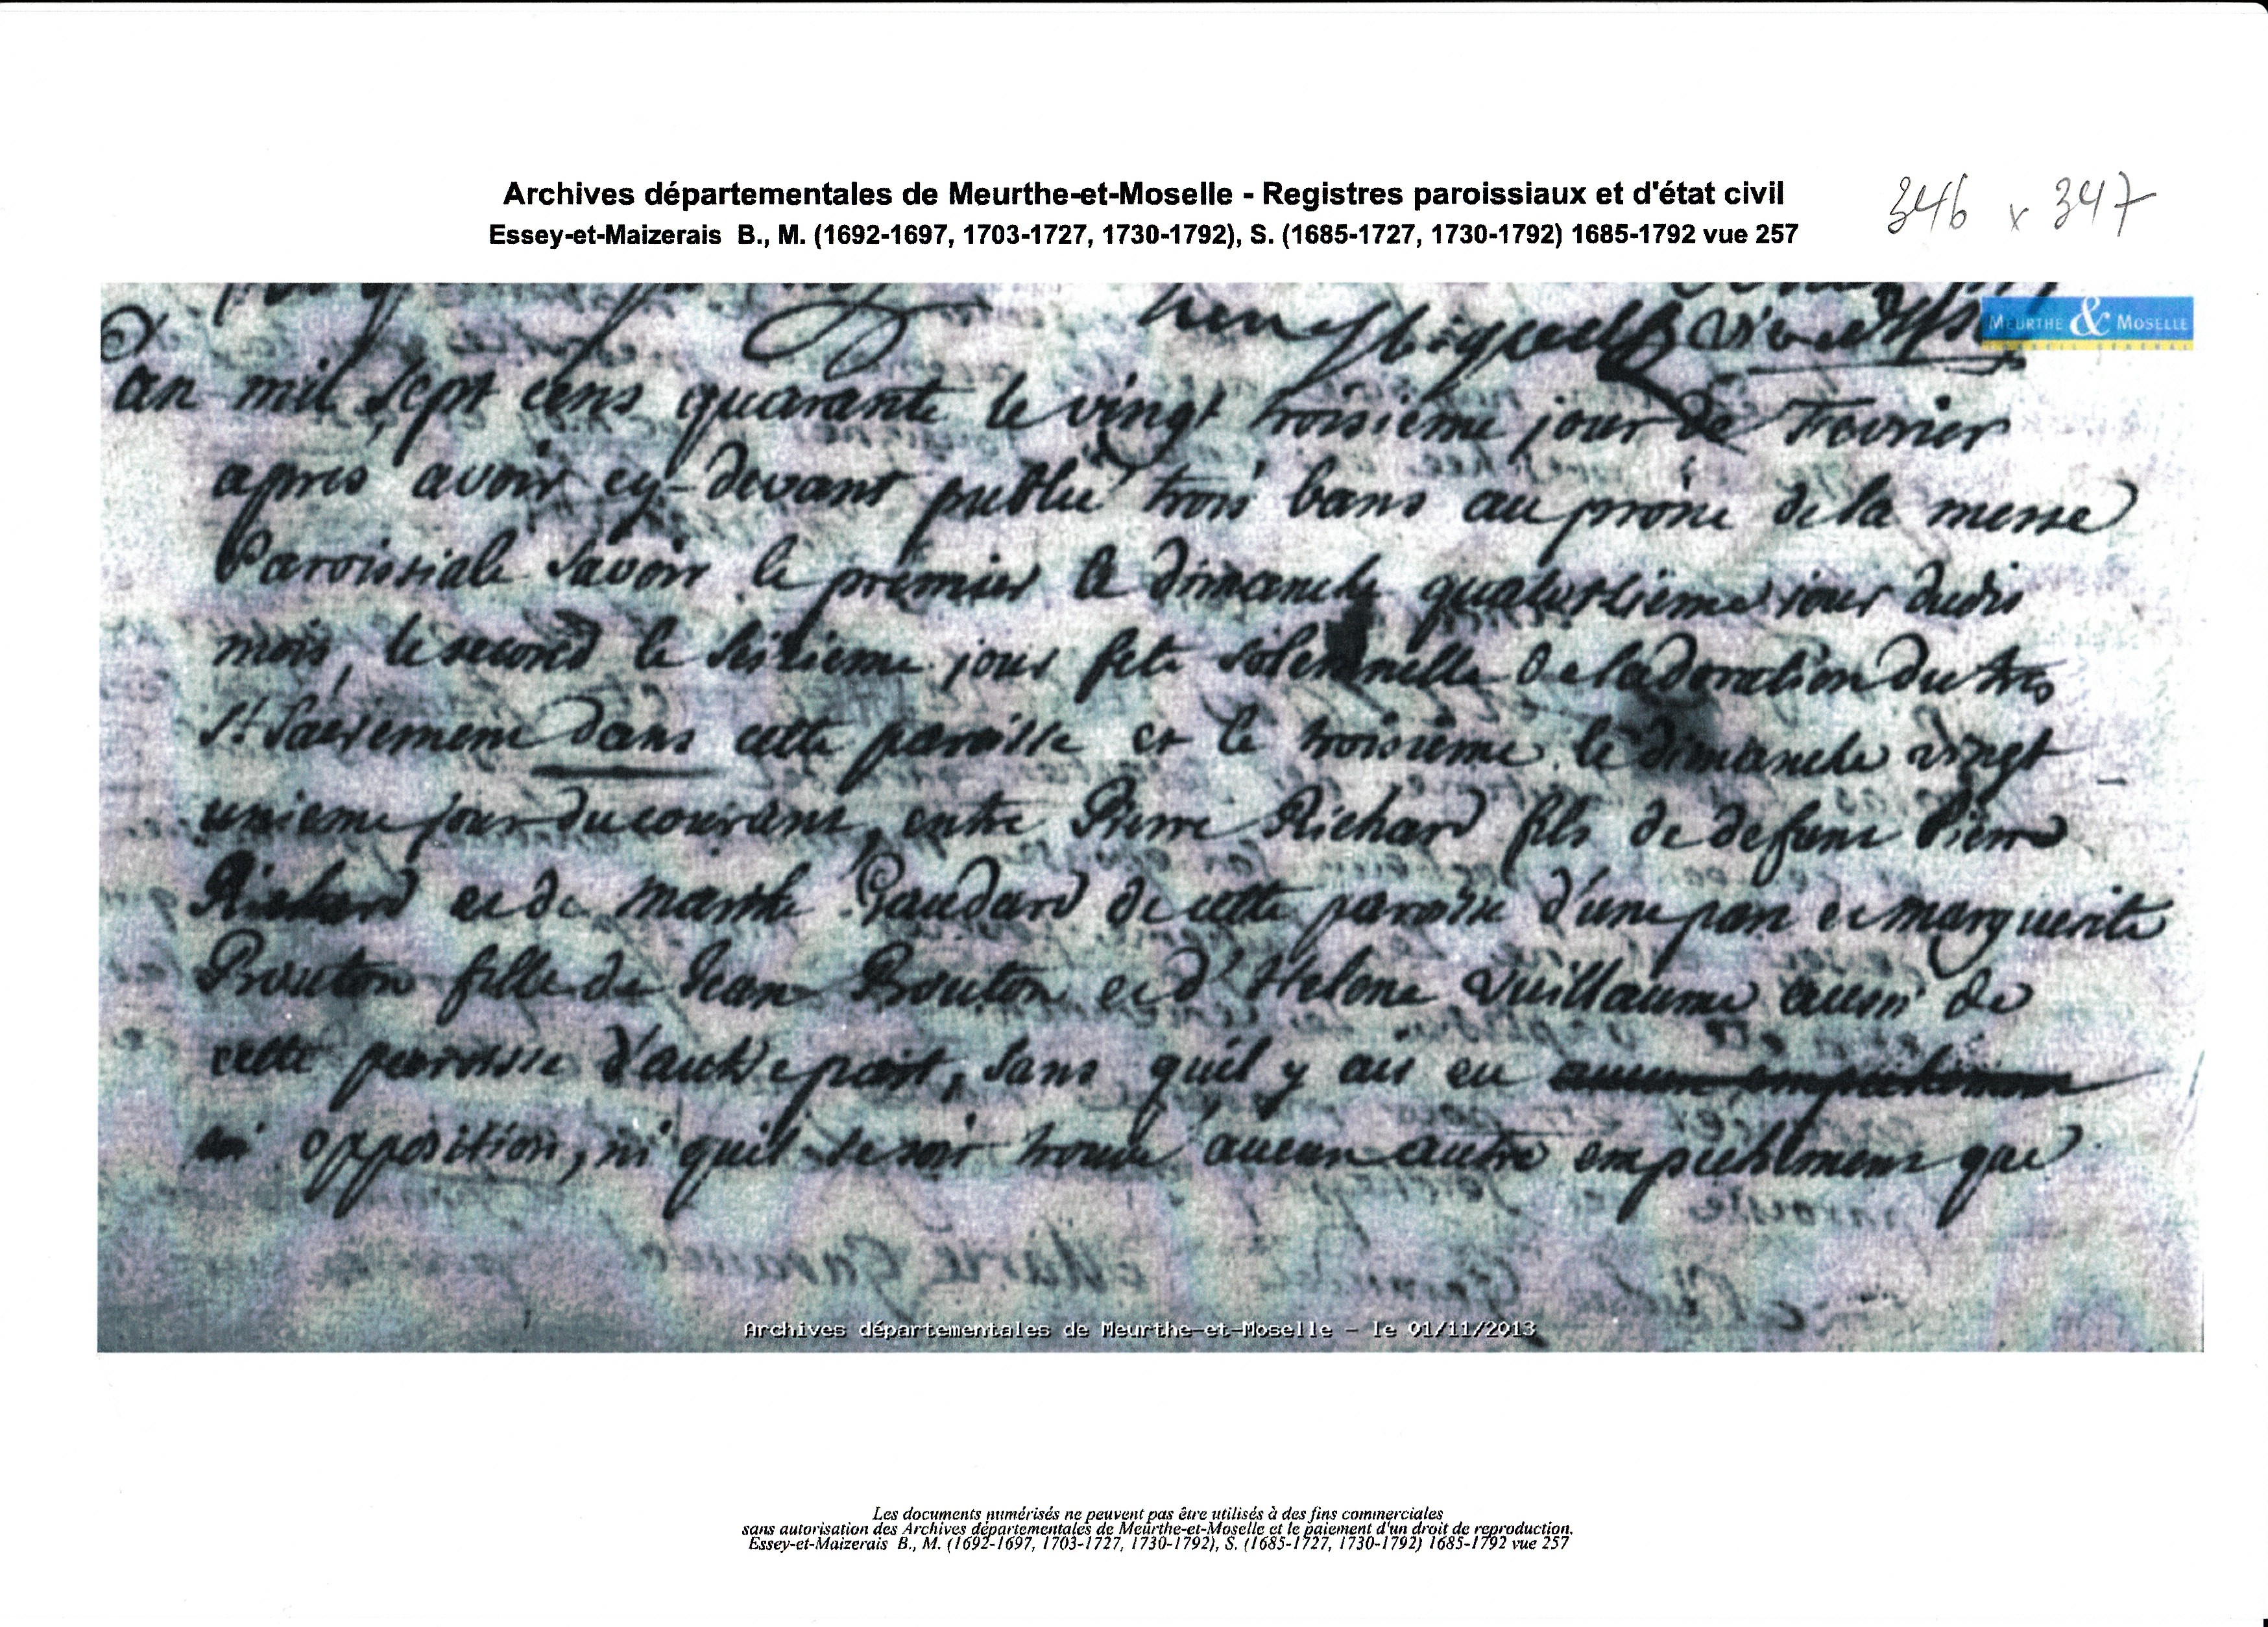 Archives départementales de Meurthe-et-Moselle - Registres paroissiaux et d'état civil
346 x 347
Essey-et-Maizerais B., M. (1692-1697, 1703-1727, 1730-1792), S. (1685-1727, 1730-1792) 1685-1792 vue 257
MEURTHE & MOSELLE
CONSEIL GÉNÉRAL
an mil sept cens quarante le vingt troisieme jour de Fevrier
apres avoir cy-devant publié trois bans au prône de la messe
Paroissiale Savoir le premier le dimanche quatorzieme jour dudit
mois, le second le seizieme jour fete solemnelle de la doration du tres
St. Sacrement dans cette paroisse et le troisieme le dimanche vingt
unieme jour du courant, entre Pierre Richard fils de defunt Pierre
Richard et de marthe Gaudard de cette paroisse d'une part et marguerite
Bouton fille de Jean Bouton et d'Helene Vuillaume aussi de
cette paroisse d'autre part, sans qu'il y ait eu aucun empechement
ni opposition, ni quil se soit trouvé aucun autre empechement que
Archives départementales de Meurthe-et-Moselle - le 01/11/2013
Les documents numérisés ne peuvent pas être utilisés à des fins commerciales
sans autorisation des Archives départementales de Meurthe-et-Moselle et le paiement d'un droit de reproduction.
Essey-et-Maizerais B., M. (1692-1697, 1703-1727, 1730-1792), S. (1685-1727, 1730-1792) 1685-1792 vue 257